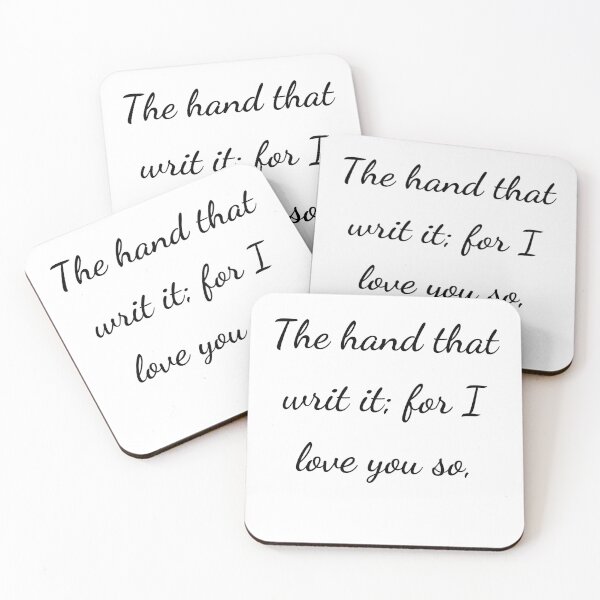 The hand that
writ it; for I
so
The hand that
writ it; for I
love you so,
The hand that
writ it; for I
love you
The hand that
writ it; for I
love you so,